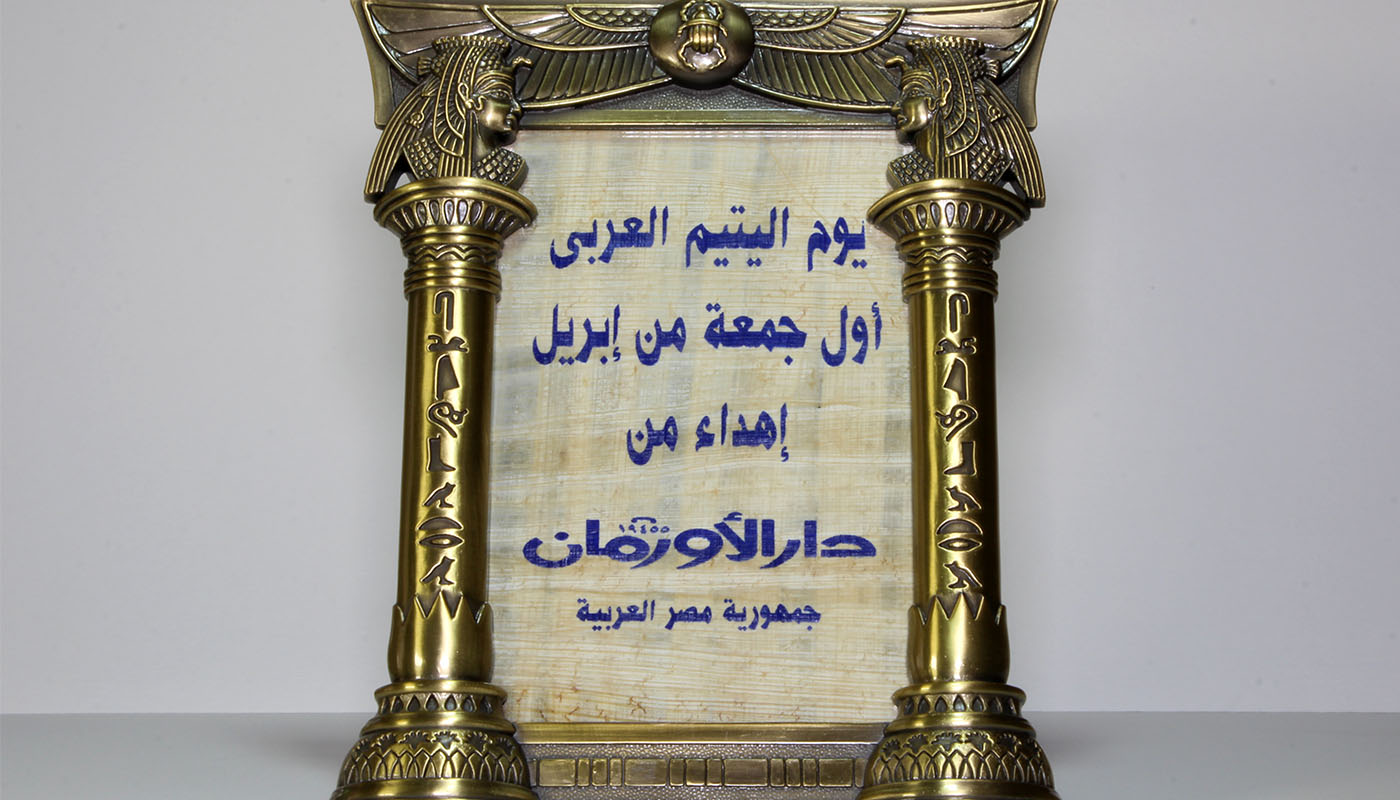 يوم اليتيم العربى
أول جمعة من إبريل
إهداء من
دار الأورمان
١٩٤٥٥
جمهورية مصر العربية